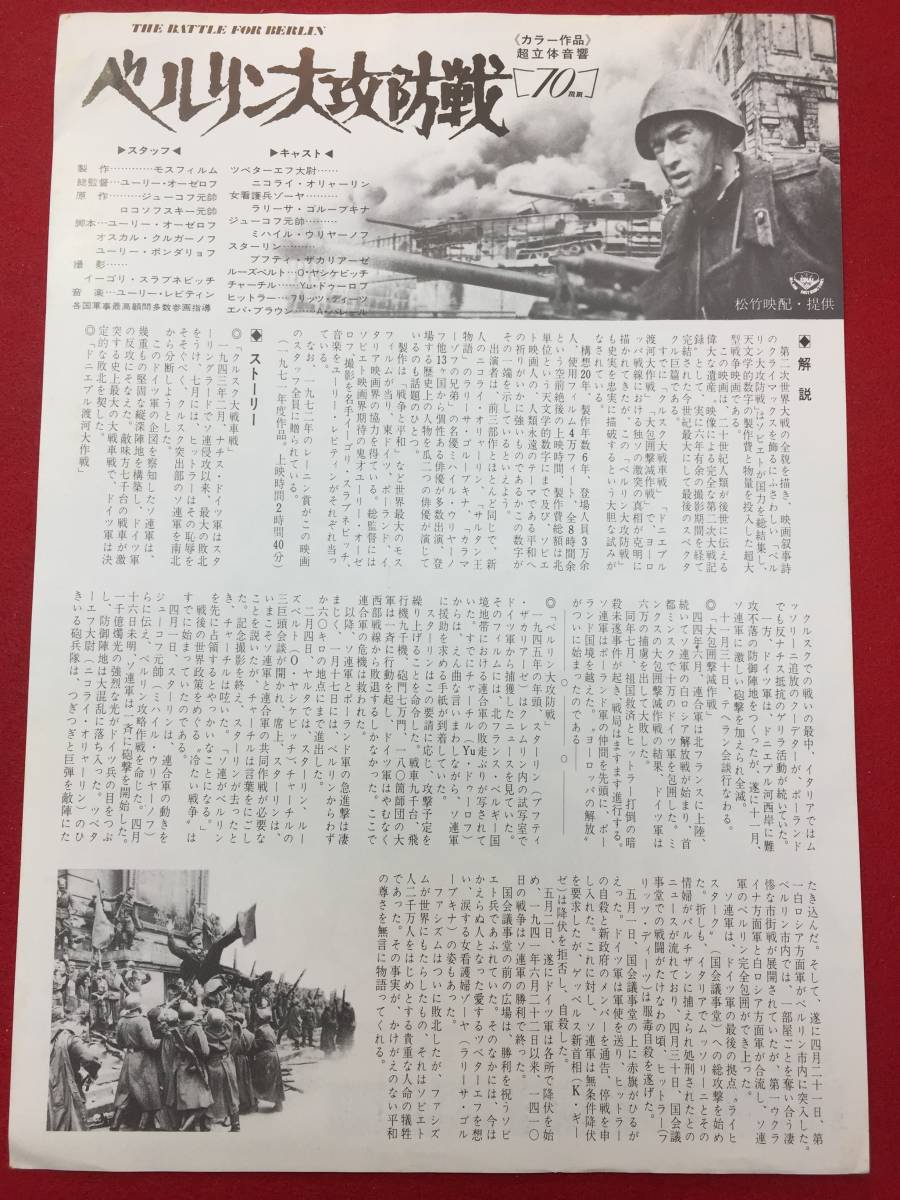 THE BATTLE FOR BERLIN
ベルリン大攻防戦
《カラー作品》
超立体音響
70mm
▶スタッフ◀
製作…………モスフィルム
総監督…ユーリー・オーゼロフ
原作………ジューコフ元帥
ロコソフスキー元帥
脚本…ユーリー・オーゼロフ
オスカル・クルガーノフ
ユーリー・ボンダリョフ
撮影……
イーゴリ・スラブネビッチ
音楽…ユーリー・レビティン
各国軍事最高顧問多数参画指導
▶キャスト◀
ツベターエフ大尉……
ニコライ・オリャーリン
女看護兵ゾーヤ………
ラリーサ・ゴルーブキナ
ジューコフ元帥………
ミハイル・ウリヤーノフ
スターリン………
ブフティ・ザカリアーゼ
ルーズベルト…O・ヤシケビッチ
チャーチル……Yu・ドゥーロフ
ヒットラー……フリッツ・ディーツ
エバ・ブラウン……A・バレール
松竹映配・提供
◆解説
第二次世界大戦の全貌を描き、映画叙事詩
のクライマックスを飾るにふさわしい「ベル
リン大攻防戦」はソビエトが国力を総結集し、
天文学的数字の製作費と物量を投入した超大
型戦争映画である。
この映画は、二十世紀人類が後世に伝える
偉大な遺産、映像による完全な第二次大戦記
録として、実に六年有余の撮影期間を経て
完結された今世紀最大にして最後のスペクタ
クル巨篇である。
すでに「クルスク大戦車戦」「ドニエプル
渡河大作戦」「大包囲撃滅作戦」で、ヨーロ
ッパ戦線における独ソの激突の真相が克明に
描かれてきたが、この「ベルリン大攻防戦」
も史実を忠実に描破するという大胆な試みが
なされている。
構想20年、製作年数6年、登場人員3万余
人、使用フィルム4万フィート、全8時間余
という空前絶後の上映時間、製作費総額は兆
単位という天文学的数字にまで及び、ソビエ
ト映画人の、人類永遠のテーマである平和へ
の祈りがいかに強いものであるかこの数字が
その一端を示しているといえよう。
出演者は、前三部作とほとんど同じで、新
人のニコライ・オリャーリン、「サルタン王
物語」のラリーサ・ゴルーブキナ、「カラマ
ーゾフの兄弟」の名優ミハイル・ウリヤーノ
フ他13ヶ国から個性ある俳優が多数出演、登
場する歴史上の人物を瓜二つの俳優が演じて
いるのも話題のひとつ。
製作は「戦争と平和」など世界最大のモス
フィルムが当り、東ドイツ、ポーランド、イ
タリア映画界の協力を得ている。総監督には
ソビエト映画界期待の鬼才ユーリー・オーゼ
ロフ、撮影を名手イーゴリ・スラブネビッチ、
音楽をユーリー・レビティンがそれぞれ当っ
ている。
なお、一九七二年のレーニン賞がこの映画
のスタッフ全員に贈られている。
(一九七一年度作品。上映時間2時間40分)
◆ストーリー
◎「クルスク大戦車戦」
一九四三年二月、ナチス・ドイツ軍はスタ
ーリングラードでソ連侵攻以来、最大の敗北
をうけ、七月には、ヒットラーはその恥辱を
そそぐべく、クルスク突出部のソ連軍を南北
から分断しようとした。
このドイツ軍の企図を察知したソ連軍は、
幾重もの堅固な縦深陣地を構築し、ドイツ軍
の反攻にそなえた。敵味方七千台の戦車が激
突する史上最大の大戦車戦で、ドイツ軍は決
定的な敗北を喫した。
◎「ドニエプル渡河大作戦」
クルスクでの戦いの最中、イタリアではム
ッソリーニ追放のクーデターが、ポーランド
でも反ナチス抵抗のゲリラ活動が続いていた。
一方、ドイツ軍は、ドニエプル河西岸に難
攻不落の防御陣地をつくったが、遂に十一月、
ソ連軍に激しい砲撃を加えられ全滅。
十一月三十日、テヘラン会談行なわる。
◎「大包囲撃滅作戦」
四四年六月、連合軍は北フランスに上陸、
続いてソ連軍の白ロシア解放戦が始まり、首
都ミンスクで四十万のドイツ軍を包囲した。ミ
ンスクの大包囲撃滅作戦の結果、ドイツ軍は
六万の捕虜を出して大敗した。
同年七月、祖国救済とヒットラー打倒の暗
殺未遂事件が起き、戦局はますます進行する。
ソ連軍はポーランド軍の仲間を先頭に、ポー
ランド国境を越えた。“ヨーロッパの解放”
がついに始まったのである
○　○
◎「ベルリン大攻防戦」
一九四五年の年頭、スターリン(ブフティ
・ザカリアーゼ)はクレムリン内の試写室で
ドイツ軍から捕獲したニュースを見ていた。
そのフィルムには、北フランス・ベルギー国
境地帯における連合軍の敗走ぶりが写されて
いた。そしてチャーチル(Yu・ドゥーロフ)
からは、えん曲な言いまわしながら、ソ連軍
に援助を求める手紙が到着していた。
スターリンはこの要請に応じ、攻撃予定を
繰り上げることを命令した。戦車九千台、飛
行機九千機、砲門七万門、一八〇箇師団の大
軍は一斉に行動を起し、ドイツ軍はやむなく
西部戦線から敗退するしかなかった。ここで
連合軍の危機は救われた。
以降、ソ連軍とポーランド軍の急進撃は凄
まじく、一月十七日には、ベルリンからわず
か六〇キロの地点にまで進出した。
二月四日、ヤルタでは、スターリン・ルー
ズベルト(O・ヤシケビッチ)、チャーチルの
三巨頭会談が開かれ、席上、スターリンは、
いまこそ、ソ連軍と連合軍の共同作戦が必要な
ことを説いたが、チャーチルは言葉をにごし
た。記念撮影を終え、スターリンが去ったと
き、チャーチルは呟いた。「ソ連がベルリン
を先に占領するとやっかいなことになる。」
戦後の世界政策をめぐる“冷たい戦争”は
すでに始まっていたのである。
四月一日、スターリンは、連合軍の動きを
ジューコフ元帥(ミハイル・ウリヤーノフ)
らに伝え、ベルリン攻略作戦を命じた。四月
十六日未明、ソ連軍は一斉に砲撃を開始した。
一千億燭光の強烈な光がドイツ兵の目をつぶ
し、防御陣地は大混乱に落ち入った。ツベタ
ーエフ大尉(ニコライ・オリャーリン)のひ
きいる砲兵隊は、つぎつぎと巨弾を敵陣にた
たき込んだ。そして、遂に四月二十一日、第
一白ロシア方面軍がベルリン市内に突入した。
ベルリン市内では、一部屋ごとを奪い合う凄
惨な市街戦が展開されていたが、第一ウクラ
イナ方面軍と白ロシア方面軍が合流し、ソ連
軍のベルリン完全包囲ができ上った。
ソ連軍は、ドイツ軍の最後の拠点“ライヒ
スターク”(国会議事堂)への総攻撃を始め
た。折しも、イタリアでムッソリーニとその
情婦がパルチザンに捕えられ処刑されたとの
ニュースが流れており、四月三十日、国会議
事堂での戦闘がたけなわの頃、ヒットラー(フ
リッツ・ディーツ)は服毒自殺を遂げた。
五月一日、国会議事堂の上に赤旗がひるが
えった。ドイツ軍は軍使を送り、ヒットラー
の自殺と新政府のメンバーを通告、停戦を申
し入れた。これに対し、ソ連軍は無条件降伏
を要求したが、ゲッペルス新首相(K・ギー
ゼ)は降伏を拒否し、自殺した。
五月二日、遂にドイツ軍は各所で降伏を始
め、一九四一年六月二十二日以来、一四一〇
日の戦争はソ連軍の勝利で終った。
国会議事堂の前の広場は、勝利を祝うソビ
エト兵であふれていた。そのなかには、今は
かえらぬ人となった愛するツベターエフを想
い、涙する女看護婦ゾーヤ(ラリーサ・ゴル
ーブキナ)の姿もあった。
ファシズムはついに敗北したが、ファシズ
ムが世界にもたらしたもの、それはソビエト
人二千万人をはじめとする貴重な人命の犠牲
であった。その事実が、かけがえのない平和
の尊さを無言に物語ってくれる。